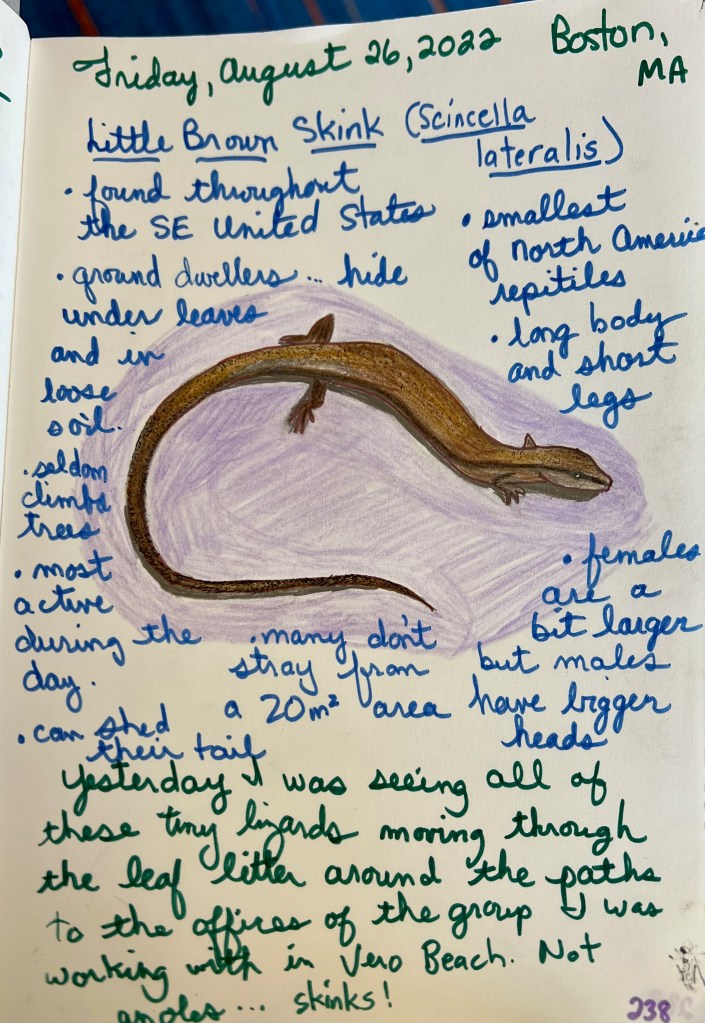 Friday, August 26, 2022 Boston,
MA
Little Brown Skink (Scincella
lateralis)
• found throughout
the SE United States
• ground dwellers... hide
under leaves
and in
loose
soil.
• seldom
climbs
trees
• most
active
during the
day.
• can shed
their tail
• smallest
of North America
repitiles
• long body
and short
legs
• many don't
stray from
a 20m² area
• females
are a
bit larger
but males
have bigger
heads
Yesterday I was seeing all of
these tiny lizards moving through
the leaf litter around the paths
to the offices of the group I was
working with in Vero Beach. Not
anoles... skinks!
238